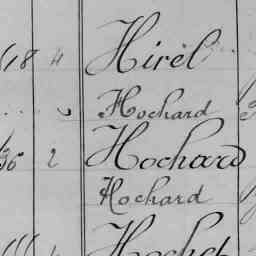 118 4 Hirel
Hochard
36 2 Hochard
Hochard
Hochet